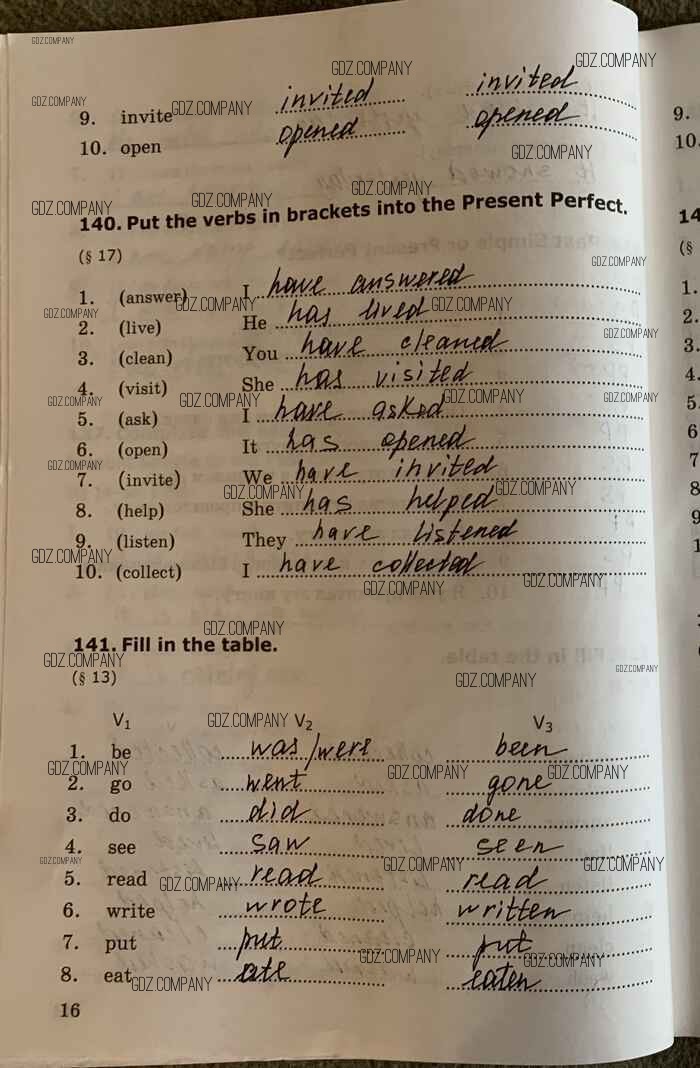 9. invite invited invited
10. open opened opened
140. Put the verbs in brackets into the Present Perfect.
(§ 17)
1. (answer) I have answered
2. (live) He has lived
3. (clean) You have cleaned
4. (visit) She has visited
5. (ask) I have asked
6. (open) It has opened
7. (invite) We have invited
8. (help) She has helped
9. (listen) They have listened
10. (collect) I have collected
141. Fill in the table.
(§ 13)
V1 V2 V3
1. be was/were been
2. go went gone
3. do did done
4. see saw seen
5. read read read
6. write wrote written
7. put put put
8. eat ate eaten
16
GDZ.COMPANY